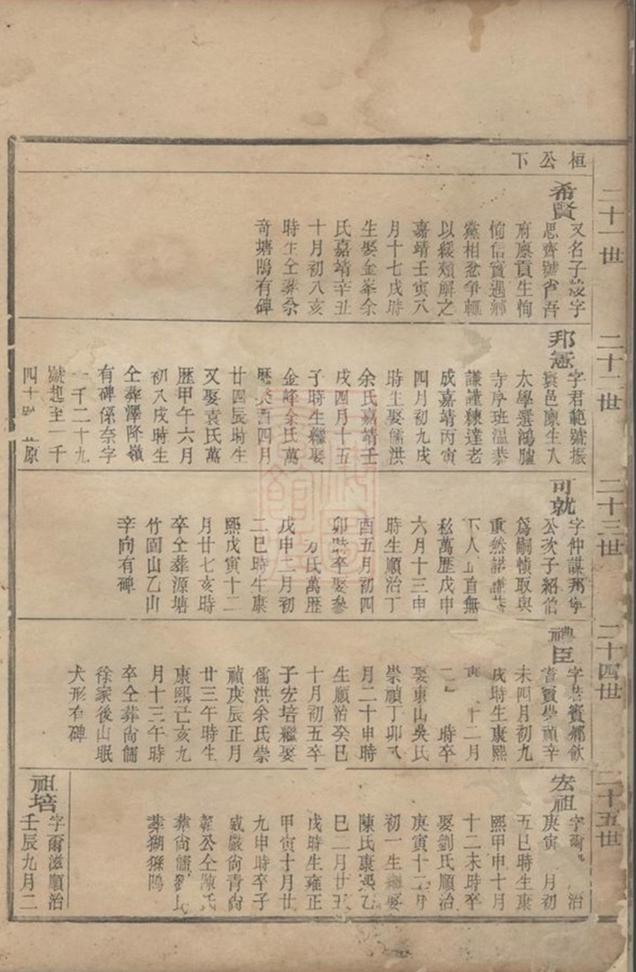 桓公下
二十一世
希賢
又名子
思齊號省吾
府廪貢生恂
恂信實遇鄉
黨相忿爭輒
以緩頰解之
嘉靖壬寅八
月十七戌時
生娶金峯余
氏嘉靖辛丑
十月初八亥
時生仝葬余
奇塘鵰有碑
二十二世
邦憲
字君範號振
邑廪生入
太學選鴻臚
寺序班溫恭
謙謹練達老
成嘉靖丙寅
四月初九戌
時生娶儒洪
余氏嘉靖壬
戌四月十五
子時生繼娶
金峰余氏萬
曆癸酉四月
廿四辰時生
又娶袁氏萬
歷甲午六月
初八戌時生
仝葬澤降嶺
有碑係奈字
一千二十九
號起至一千
四十 原
二十三世
可就
字仲謀邦寧
公次子紹伯
爲嗣慎取與
重然諾謙恭
下人正直無
私萬歷戊申
六月十三申
時生順治丁
酉五月初四
卯時卒娶參
方氏萬歷
戊申二月初
二巳時生康
熙戊寅十二
月廿七亥時
卒仝葬源塘
竹園山乙山
辛向有碑
二十四世
禮臣
字 賓鄉飲
賓賢崇禎辛
未四月初九
戌時生康熙
寅十二月
二 時卒
娶東山吳氏
崇禎丁卯八
月二十申時
生順治癸巳
十月初五卒
子宏培繼娶
儒洪余氏崇
禎庚辰正月
廿三午時生
康熙己亥九
月十三午時
卒仝葬尙儒
徐家後山眠
犬形有碑
二十五世
宏祖
字爾 治
庚寅 月初
五巳時生康
熙甲申十月
十二未時卒
娶劉氏順治
庚寅十二月
初一生繼娶
陳氏康熙乙
巳二月廿五
戌時生雍正
甲寅十月廿
九申時卒子
威嚴尙靑尙
公仝陳氏
葬尙儒劉
葬猢猻鵰
祖培
字爾滋順治
壬辰九月二